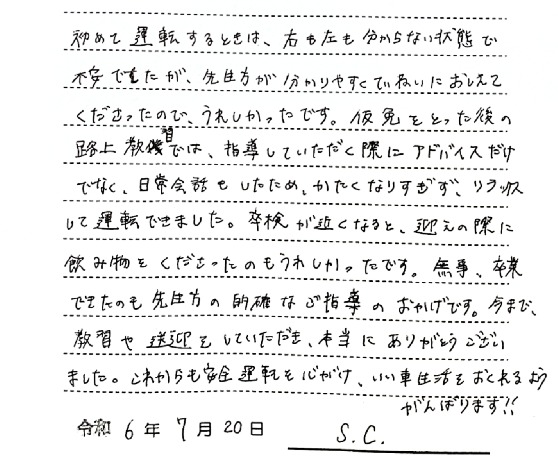 初めて運転するときは、右も左も分からない状態で
不安でしたが、先生方が分かりやすくていねいにおしえて
くださったので、うれしかったです。仮免をとった後の
路上教習では、指導していただく際にアドバイスだけ
でなく、日常会話もしたため、かたくなりすぎず、リラックス
して運転できました。卒検が近くなると、迎えの際に
飲み物をくださったのもうれしかったです。無事、卒業
できたのも先生方の的確なご指導のおかげです。今まで、
教習や送迎をしていただき、本当にありがとうござい
ました。これからも安全運転を心がけ、いい車生活をおくれるよう
がんばります!!
令和6年7月20日 S.C.